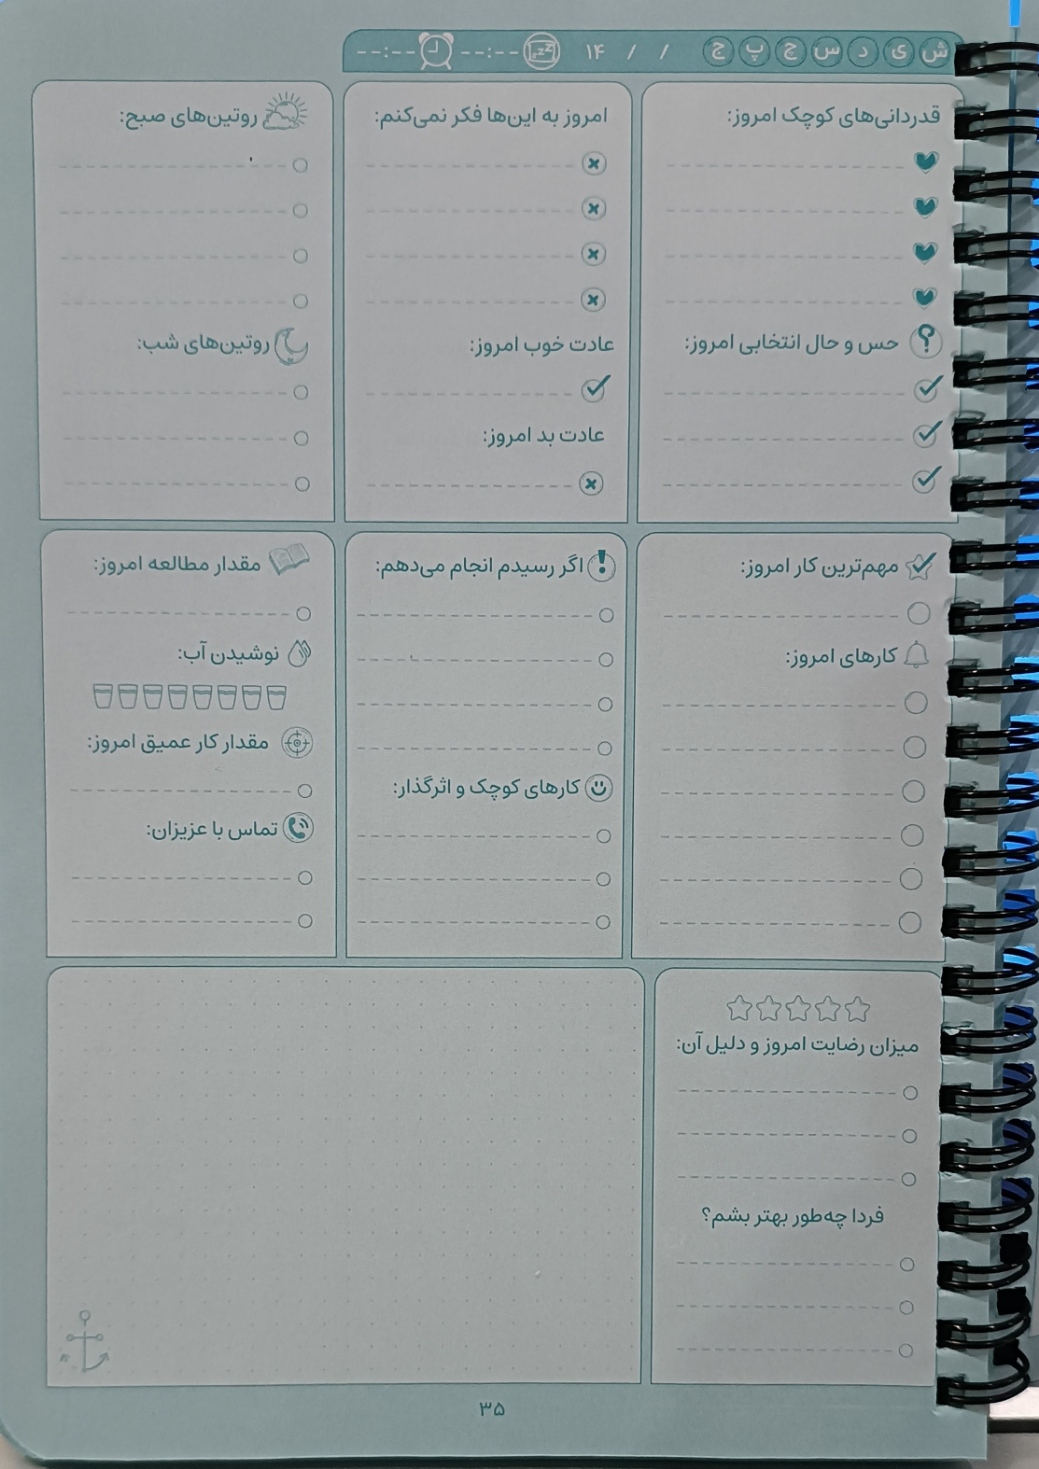 ش ی د س چ پ ج / / ۱۴ --:-- --:--
قدردانی‌های کوچک امروز:
حس و حال انتخابی امروز:
امروز به این‌ها فکر نمی‌کنم:
عادت خوب امروز:
عادت بد امروز:
روتین‌های صبح:
روتین‌های شب:
مهم‌ترین کار امروز:
کارهای امروز:
اگر رسیدم انجام می‌دهم:
کارهای کوچک و اثرگذار:
مقدار مطالعه امروز:
نوشیدن آب:
مقدار کار عمیق امروز:
تماس با عزیزان:
میزان رضایت امروز و دلیل آن:
فردا چه‌طور بهتر بشم؟
۳۵